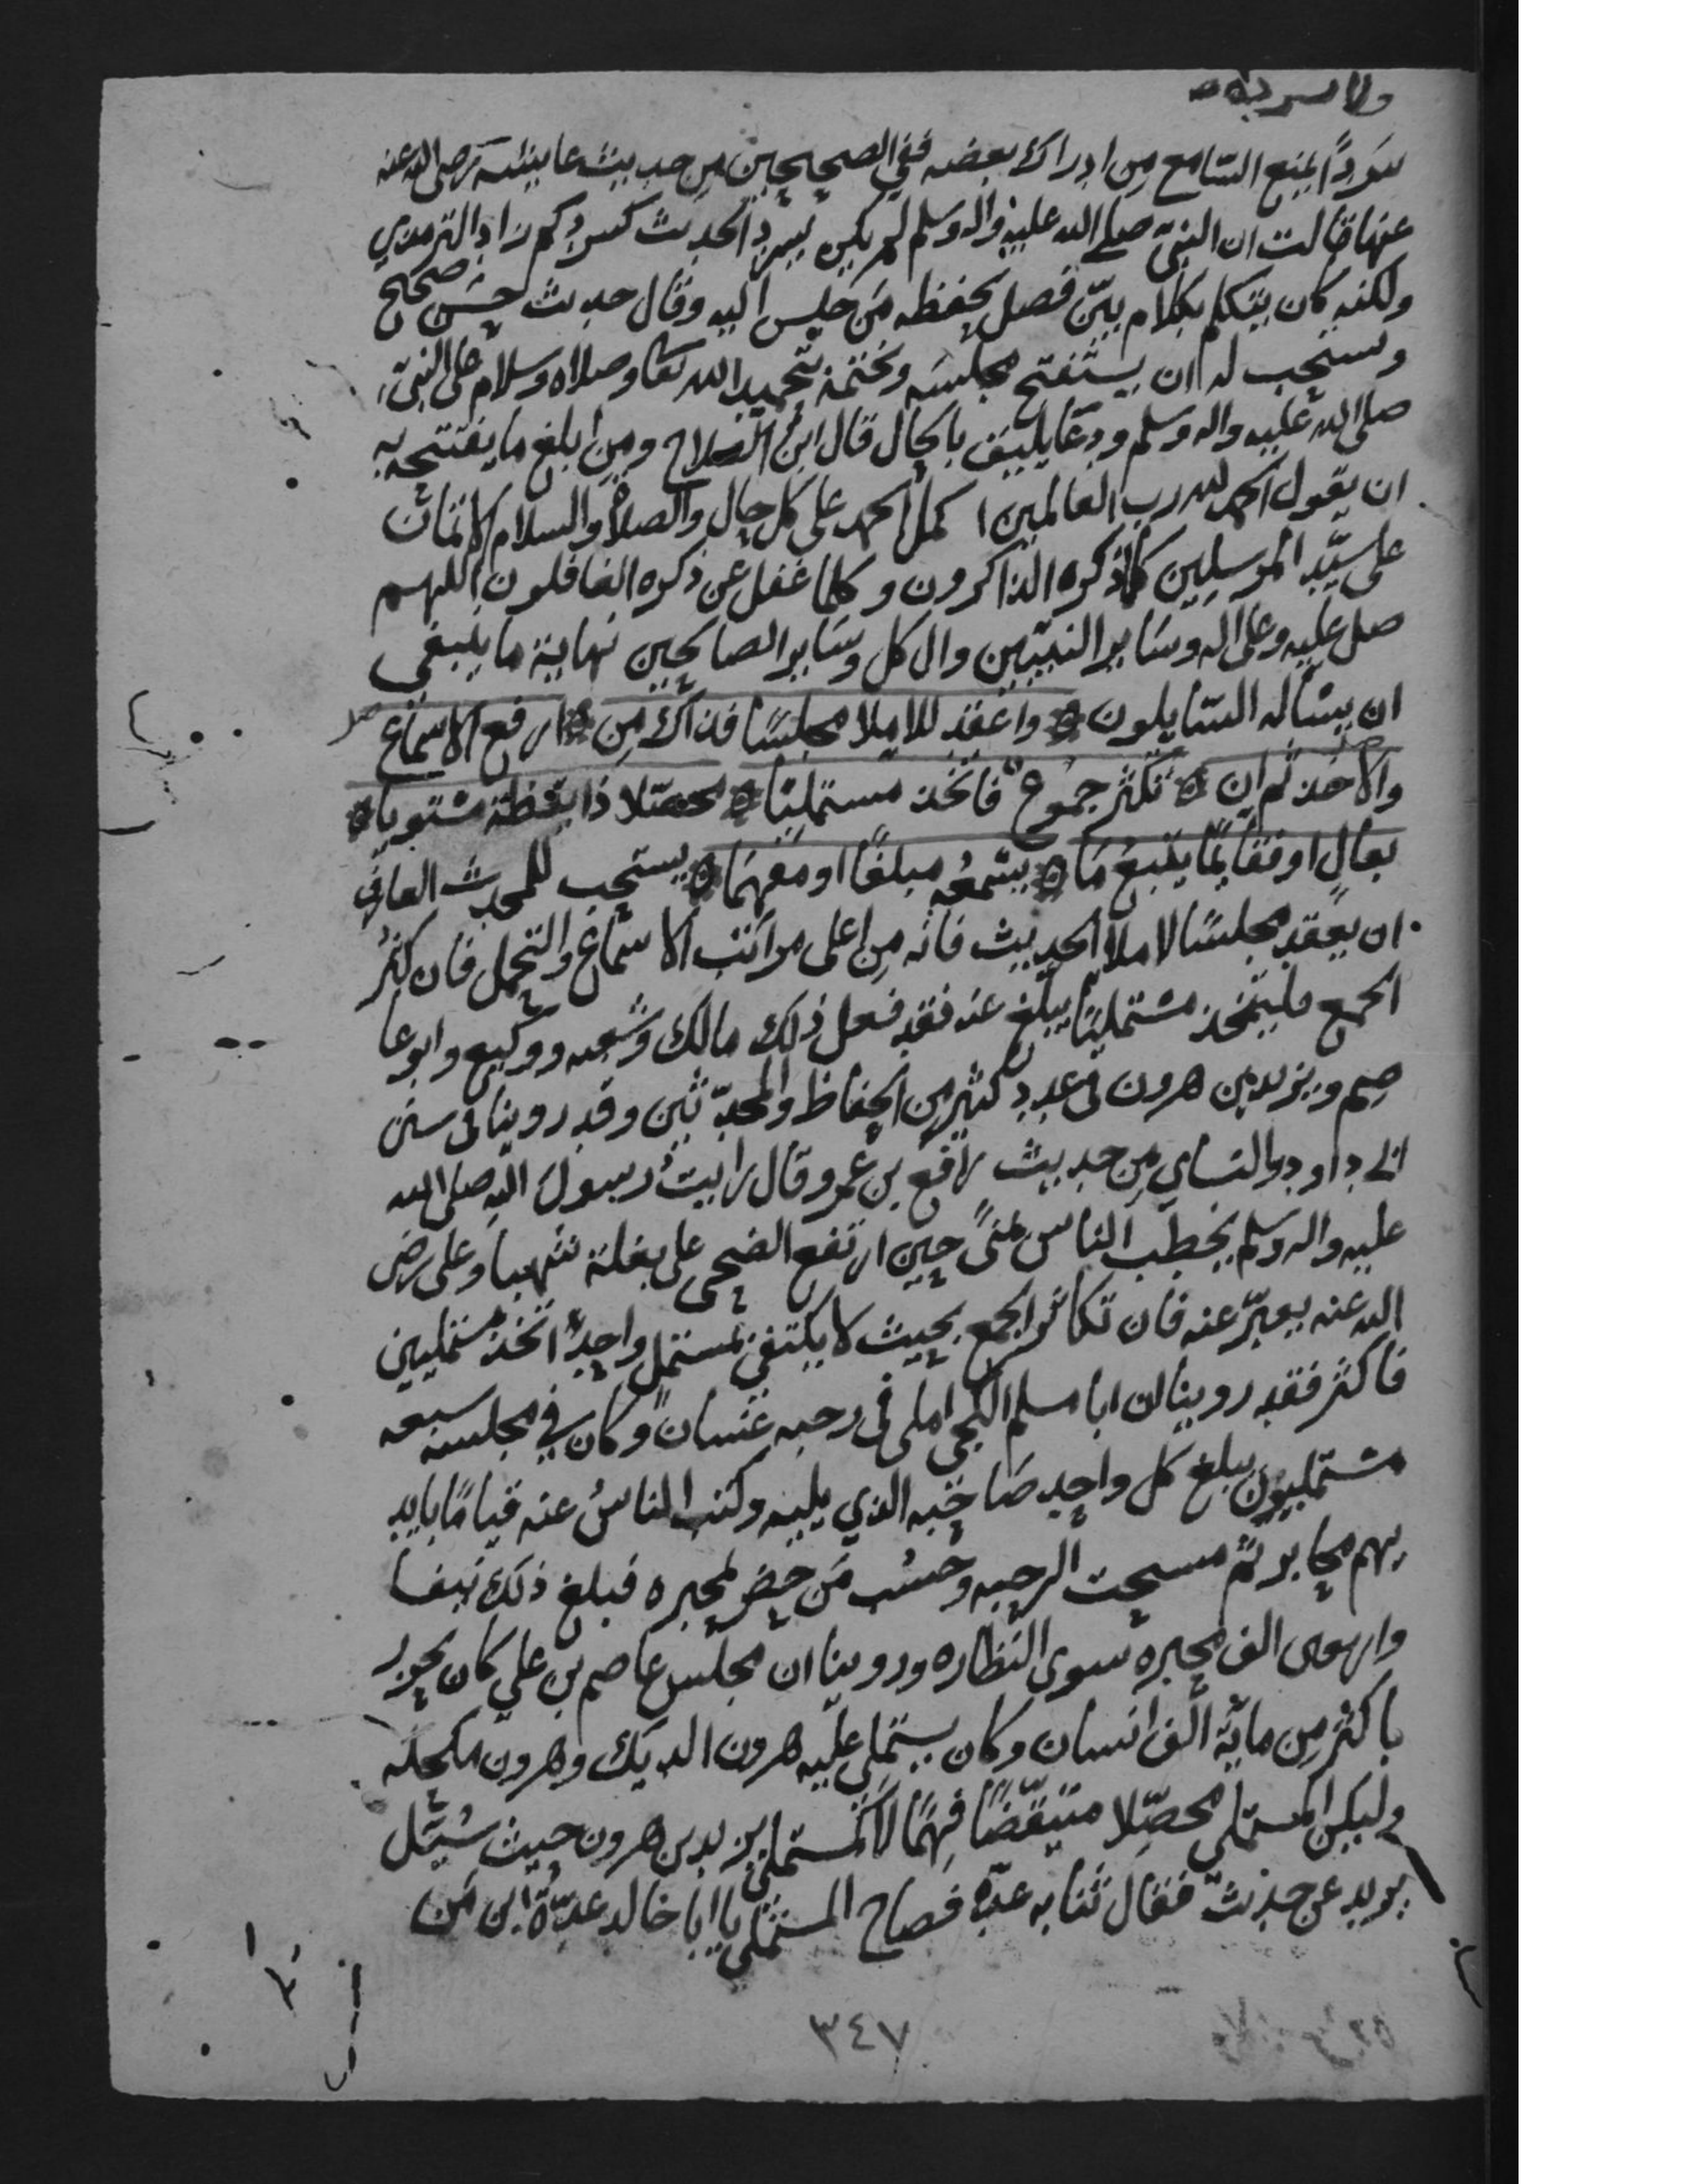 ولا يسرده
سَردًا يمنع السّامع مِن ادراك بعضه ففي الصحيحين مِن حديث عايشه رضى الله عنه
عنها قالت ان النبيّ صلى الله عليه واله وسلم لم يكن يسرد الحديث كسردكم زاد الترمذي
ولكنه كان يتكلم بكلام بيّن فصل يحفظه مَن جلس اليه وقال حديث حسَن صحيح
وستحب له ان يستفتح مجلسَه ويختمه بتحميد الله تعا وصلاه وسلام على النبيّ
صلى الله عليه واله وسلم ودعَا يليق بالحال قال ابن الصلاح ومِن ابلغ ما يفتتحه به
ان يقول الحمد لله رب العالمين اكمل الحمد على كل حال والصلاة والسلام الاتمان
على سيّد المرسلين كلما ذكره الذاكرون وكلما غفل عن ذكره الغافلون اللهم
صل عليه وعلى اله وسَاير النبيّين وال كل وسَاير الصالحين نهاية ما ينبغي
ان يسْاله السّايلون واعقد للاملا مجلسًا فذاك مِن ارفع الاسمَاع
والاخذ ثم ان تكثر جموع فاتخذ مستمليًا محصّلا ذا يقظة مسْتويا
بعالٍ اوفقايمًا يتبعُ مَا يسْمعُه مبلغًا او مفهمَا يستحب للمحدث العارف
ان يعقد مجلسًا لاملا الحديث فانه مِن اعلى مراتب الاسماع والتحمل فان كثُر
الجمع فليتخذ مسْتمليًا يبلّغ عنه فقد فعل ذلك مالك وشعبه ووكيع وابو عا
صم ويزيد بن هرون في عدد كثير مِن الحفاظ والمحدّثين وقد روينا في سنن
ابي داود والنسَاي مِن حديث رافع بن عمرو قال رايتُ رسول الله صلى الله
عليه واله وسلم يخطب الناس بمنىً حين ارتفع الضحى على بغلة شهبا وعلى رضى
الله عنه يعبّر عنه فان تكاثر الجمع بحيث لا يكتفي بمستمل واحدٍ اتخذ مستمليين
فاكثر فقد روينا ان ابا مسلم الكجي املى في رحبه غسان وكان في مجلسه سبعه
مسْتمليون يبلغ كل واحد صَاحبه الذي يليه وكتب الناسُ عنه قيامًا بايد
يهم محابر ثم مسحت الرحبه وحُسب مَن حضر بمحبره فبلغ ذلك نيفا
واربعين الف محبره سوى النظاره وروينا ان مجلس عاصم بن علي كان يحزر
باكثر مِن ماية الف انسان وكان يستملي عليه هرون الديك وهرون مكحله
وليكن المستملي محصّلا متيقّضًا فهِمًا لا كمستملي يزيد بن هرون حيث سُيل
يزيد عن حديث فقال ثنا به عدّه فصاح المستملي يا ابا خالد عدّة ابن مَن
٣٤٧